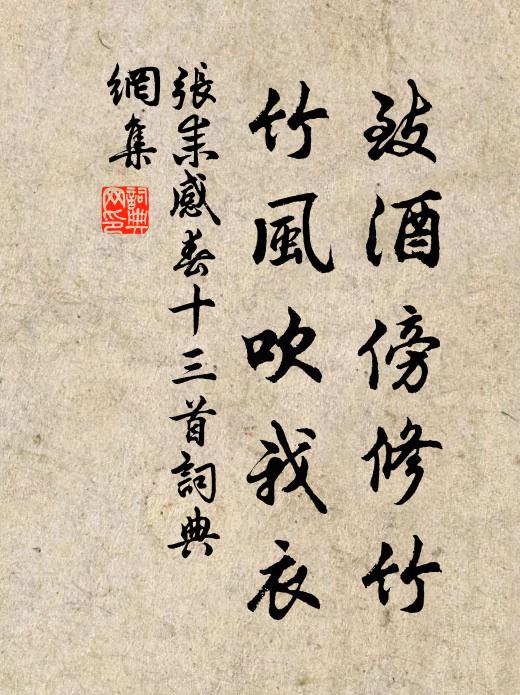 致酒傍修竹
竹風吹我衣
張耒感春十三首詞典
網集
詞典網印